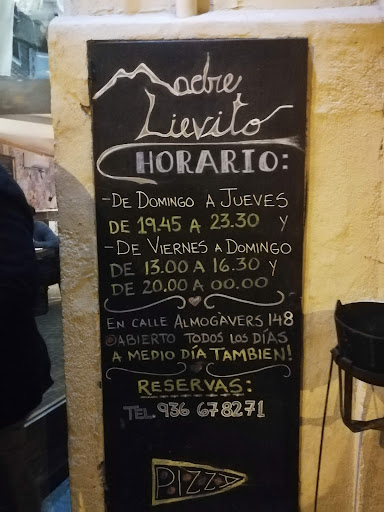 Madre
Lievito
HORARIO:
-DE DOMINGO A JUEVES
DE 19.45 A 23.30 Y
-DE VIERNES A DOMINGO
DE 13.00 A 16.30 Y
DE 20.00 A 00.00
EN CALLE ALMOGÀVERS 148
@ABIERTO TODOS LOS DÍAS
A MEDIO DÍA TAMBIEN!
RESERVAS:
TEL. 936 678271
PIZZA